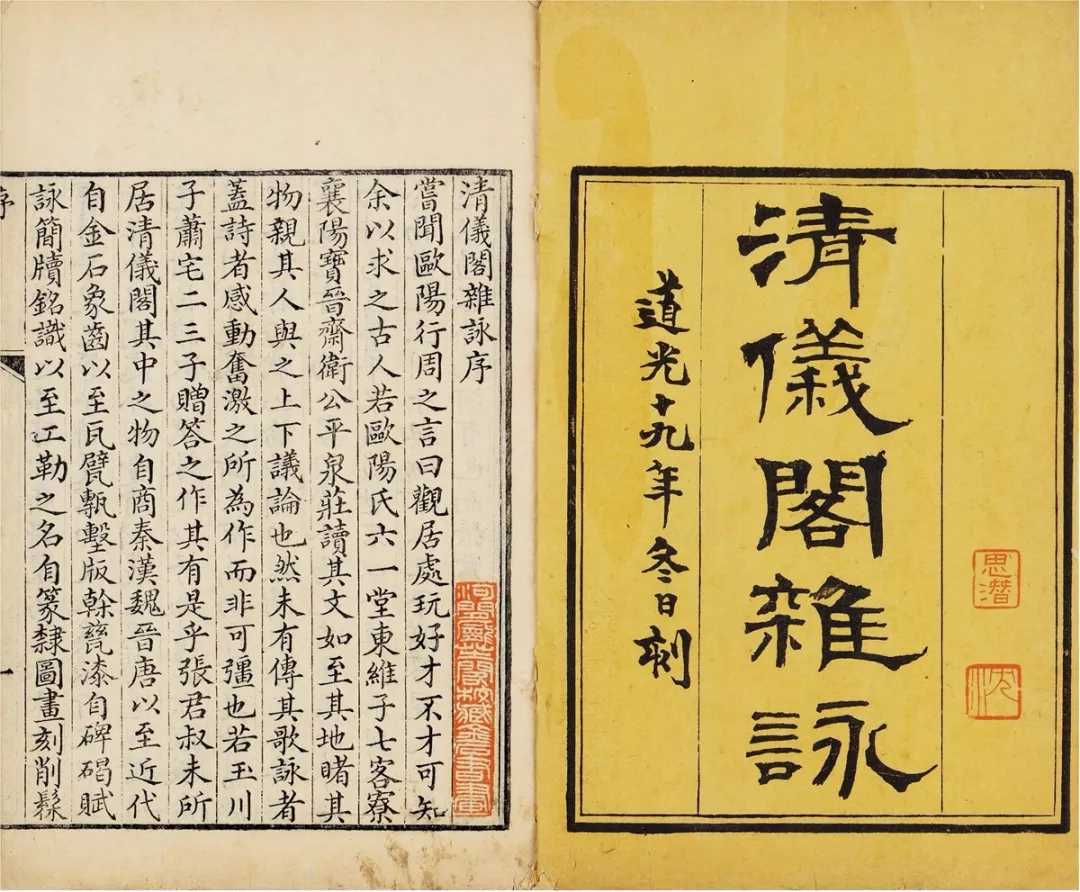 思潛
沈
清儀閣雜詠
道光十九年冬日刻
清儀閣雜詠序
嘗聞歐陽行周之言曰觀居處玩好才不才可知
余以求之古人若歐陽氏六一堂東維子七客寮
襄陽寶晉齋衛公平泉莊讀其文如至其地睹其
物親其人與之上下議論也然未有傳其歌詠者
蓋詩者感動奮激之所為作而非可彊也若玉川
子蕭宅二三子贈答之作其有是乎張君叔未所
居清儀閣其中之物自商秦漢魏晉唐以至近代
自金石象齒以至瓦甓甎墼版榦甆漆自碑碣賦
詠簡牘銘識以至工勒之名自篆隸圖畫刻削髹
序
一